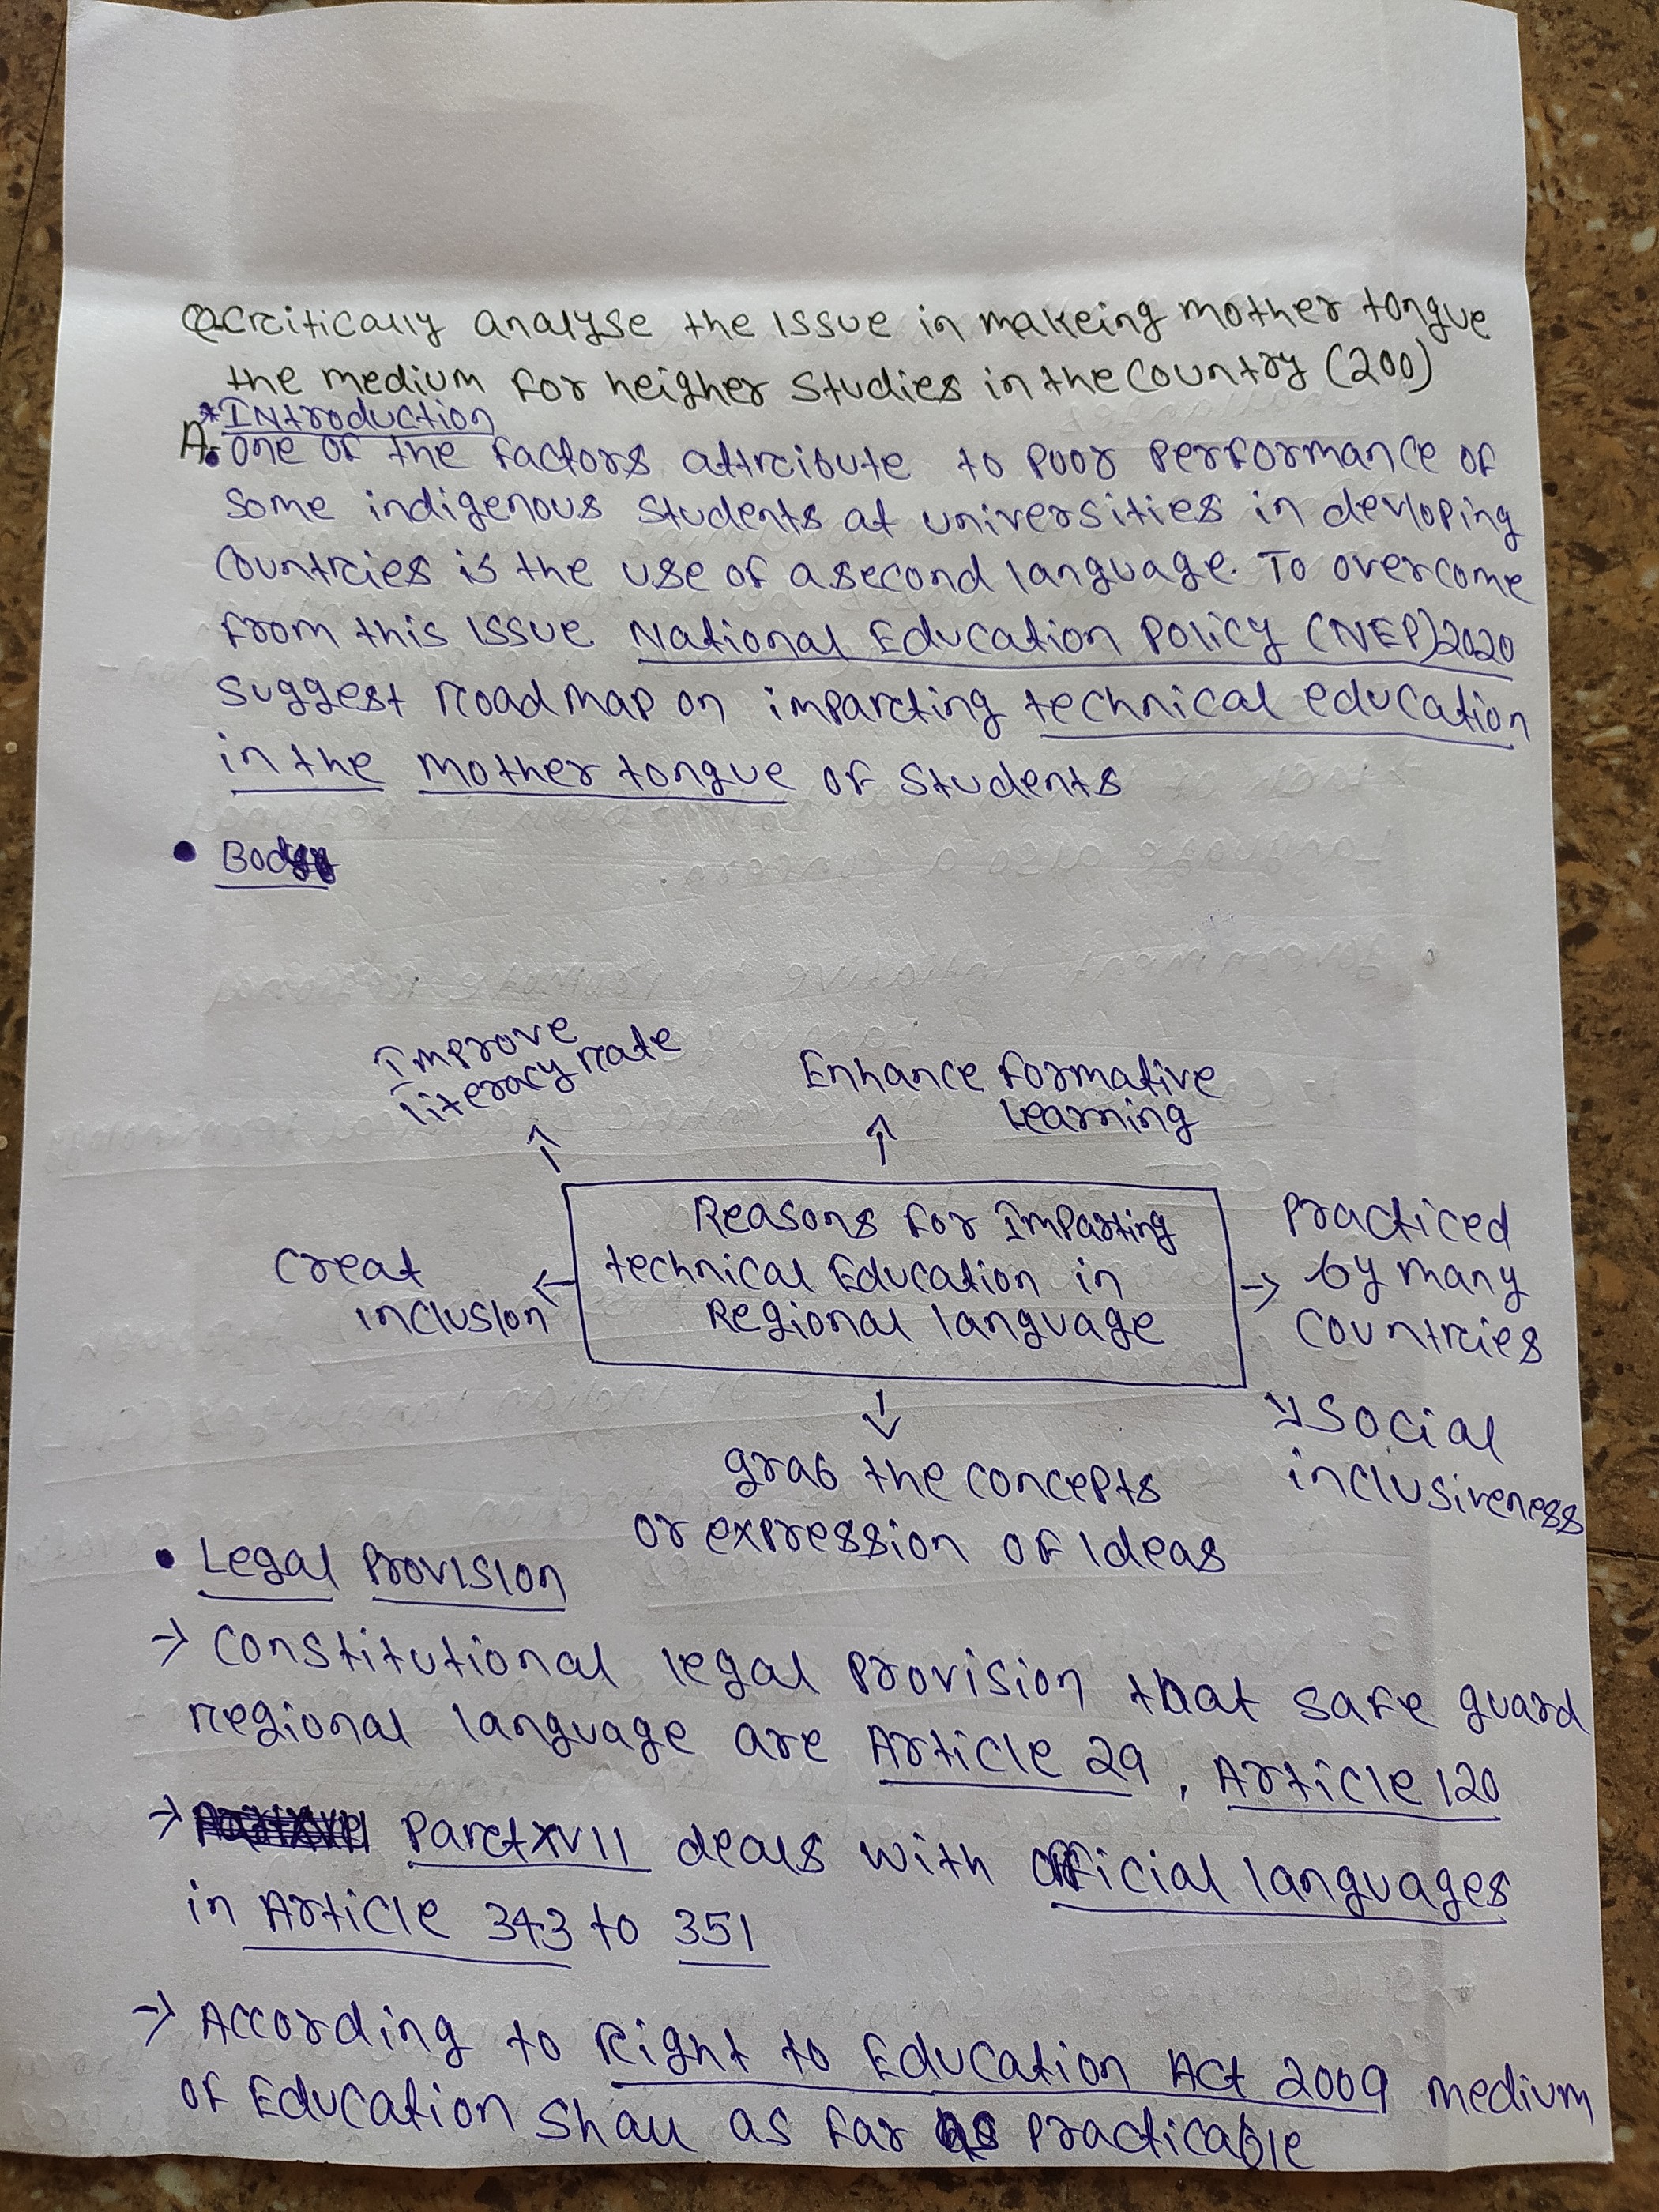 Q. Crcitically analyse the issue in makeing mother tongue
the medium for heigher studies in the country (200)
* Introduction
A. One of the factors attrcibute to poor performance of
some indigenous students at universities in devloping
countrcies is the use of a second language. To overcome
from this issue National Education Policy (NEP) 2020
suggest roadmap on imparcting technical education
in the mother tongue of students
• Body
Improve
literacy rate
Enhance formative
learning
Reasons for Imparting
technical Education in
Regional language
Creat
inclusion
practiced
by many
countrcies
Social
inclusiveness
grab the concepts
or expression of Ideas
• Legal Provision
→ Constitutional legal provision that safe guard
regional language are Article 29, Article 120
→ Parct XVII deals with official languages
in Article 343 to 351
→ According to Right to Education Act 2009 medium
of Education shall as far as practicable